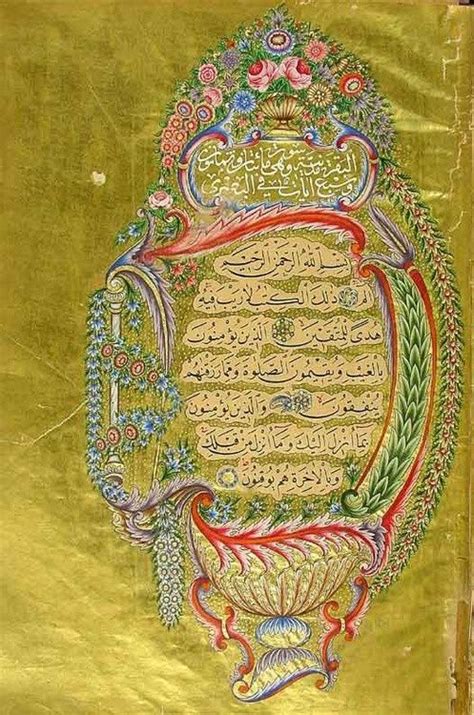 البقرة مدنية وهى مائتان وثمانون
وسبع ايات فى البصرى
بسم الله الرحمن الرحيم
الم ذلك الكتب لا ريب فيه
هدى للمتقين الذين يؤمنون
بالغيب ويقيمون الصلوة ومما رزقنهم
ينفقون والذين يؤمنون
بما انزل اليك وما انزل من قبلك
وبالاخرة هم يوقنون